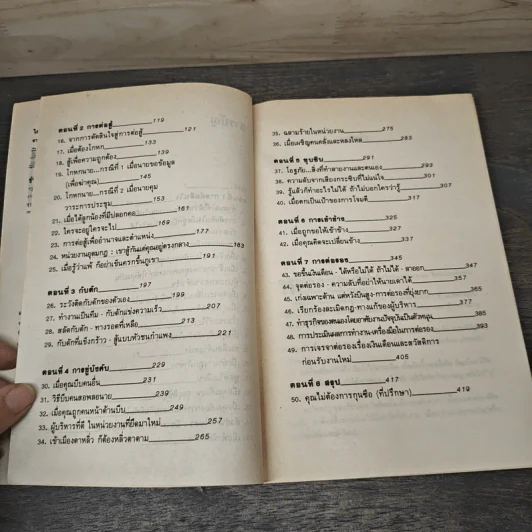 ตอนที่ 2 การต่อสู้ 119
16. จากการตัดสินใจสู่การต่อสู้ 121
17. เมื่อต้องโกหก 133
18. สู้เพื่อความถูกต้อง 139
19. โกหกนาย...กรณีที่ 1 เมื่อนายขอข้อมูล
(เพื่อฆ่าคุณ) 145
20. โกหกนาย...กรณีที่ 2 เมื่อนายคุม
วาระการประชุม 153
21. เมื่อได้ลูกน้องที่มีปลอกคอ 161
22. ใครจะอยู่ใครจะไป 169
23. การต่อสู้เพื่ออำนาจและตำแหน่ง 177
24. หน่วยงานอุดมกฎ : เขาสู้กันแต่คุณอยู่ตรงกลาง 183
25. เมื่อรู้ว่าแพ้ ก็อย่าเข็นครกขึ้นภูเขา 191
ตอนที่ 3 กับดัก 197
26. ระวังติดกับดักของตัวเอง 199
27. ทำงานเป็นทีม - กับดักแข่งความเร็ว 207
28. สลัดกับดัก - ทางรอดที่เหลือ 213
29. กับดักที่แข็งกร้าว - สู้แบบหัวชนกำแพง 221
ตอนที่ 4 การขู่บังคับ 229
30. เมื่อคุณบีบคนอื่น 231
31. วิธีบีบคนสอพลอนาย 239
32. เมื่อคุณถูกคนหน้าด้านบีบ 249
33. ผู้บริหารที่ดี ในหน่วยงานที่ยึดมาใหม่ 257
34. เข้าเมืองตาหลิ่ว ก็ต้องหลิ่วตาตาม 265
35. ฉลามร้ายในหน่วยงาน 275
36. เมื่อเผชิญคนคลั่งและหลงใหล 283
ตอนที่ 5 ซุบซิบ 291
37. โอรูภัย...สิ่งที่ทำลายงานและตนเอง 293
38. ความลับจากเสียงกระซิบที่ไม่แน่ใจ 301
39. รู้แล้วก็ทำอะไรไม่ได้ ถ้าไม่บอกใครว่ารู้ 301
40. เมื่อตกเป็นเป้าของการโจมตี 317
ตอนที่ 6 การเข้าข้าง 325
41. เมื่อถูกขอให้เข้าข้าง 327
42. เมื่อคุณคิดจะเปลี่ยนข้าง 337
ตอนที่ 7 การต่อรอง 345
43. ขอขึ้นเงินเดือน - ได้หรือไม่ได้ ถ้าไม่ได้ - ลาออก 347
44. จุดต่อรอง - ความลับที่อย่าให้นายเดาได้ 357
45. เก่งเฉพาะด้าน แต่หวังปีนสูง-การต่อรองที่ยุ่งยาก 365
46. เรียกร้องละเมิดกฎ-ทางแก้ของผู้บริหาร 377
47. ทำธุรกิจของตนเองโดยอาศัยงานปัจจุบันเป็นตัวหนุน 385
48. การประเมินผลการทำงาน-เครื่องมือในการต่อรอง 393
49. การเจรจาต่อรองเรื่องเงินเดือนและสวัสดิการ
ก่อนรับงานใหม่ 405
ตอนที่ 8 สรุป 417
50. คุณไม่ต้องการกุนซือ (ที่ปรึกษา) 419